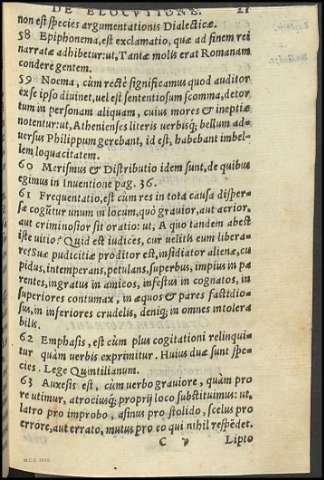 DE ELOCVTIONE. 21
non est species argumentationis Dialecticæ.
58 Epiphonema, est exclamatio, quæ ad finem rei
narratæ adhibetur: ut, Tantæ molis erat Romanam
condere gentem.
59 Noema, cùm rectè significamus quod auditor
ex se ipso diuinet, uel est sententiosum scomma, detor
tum in personam aliquam, cuius mores & ineptiæ
notentur: ut, Athenienses literis uerbisq; bellum ad-
uersus Philippum gerebant, id est, habebant imbel-
lem loquacitatem.
60 Merismus & Distributio idem sunt, de quibus
egimus in Inuentione pag. 36.
61 Frequentatio, est cùm res in tota causa disper-
sæ cogũtur unum in locum, quò grauior, aut acrior,
aut criminosior sit oratio: ut, A quo tandem abest
iste uitio? Quid est iudices, cur uelitis eum libera-
re? Suæ pudicitiæ proditor est, insidiator alienæ, cu
pidus, intemperans, petulans, superbus, impius in pa
rentes, ingratus in amicos, infestus in cognatos, in
superiores contumax, in æquos & pares fastidio-
sus, in inferiores crudelis, deniq; in omnes intolera
bilis.
62 Emphasis, est cùm plus cogitationi relinqui-
tur quàm uerbis exprimitur. Huius duæ sunt spe-
cies. Lege Quintilianum.
63 Auxesis est, cùm uerbo grauiore, quàm pro
re utimur, atrociusq; proprij loco substituimus: ut,
latro pro improbo, asinus pro stolido, scelus pro
errore, aut errato, mutus pro eo qui nihil respõdet.
C Lipto